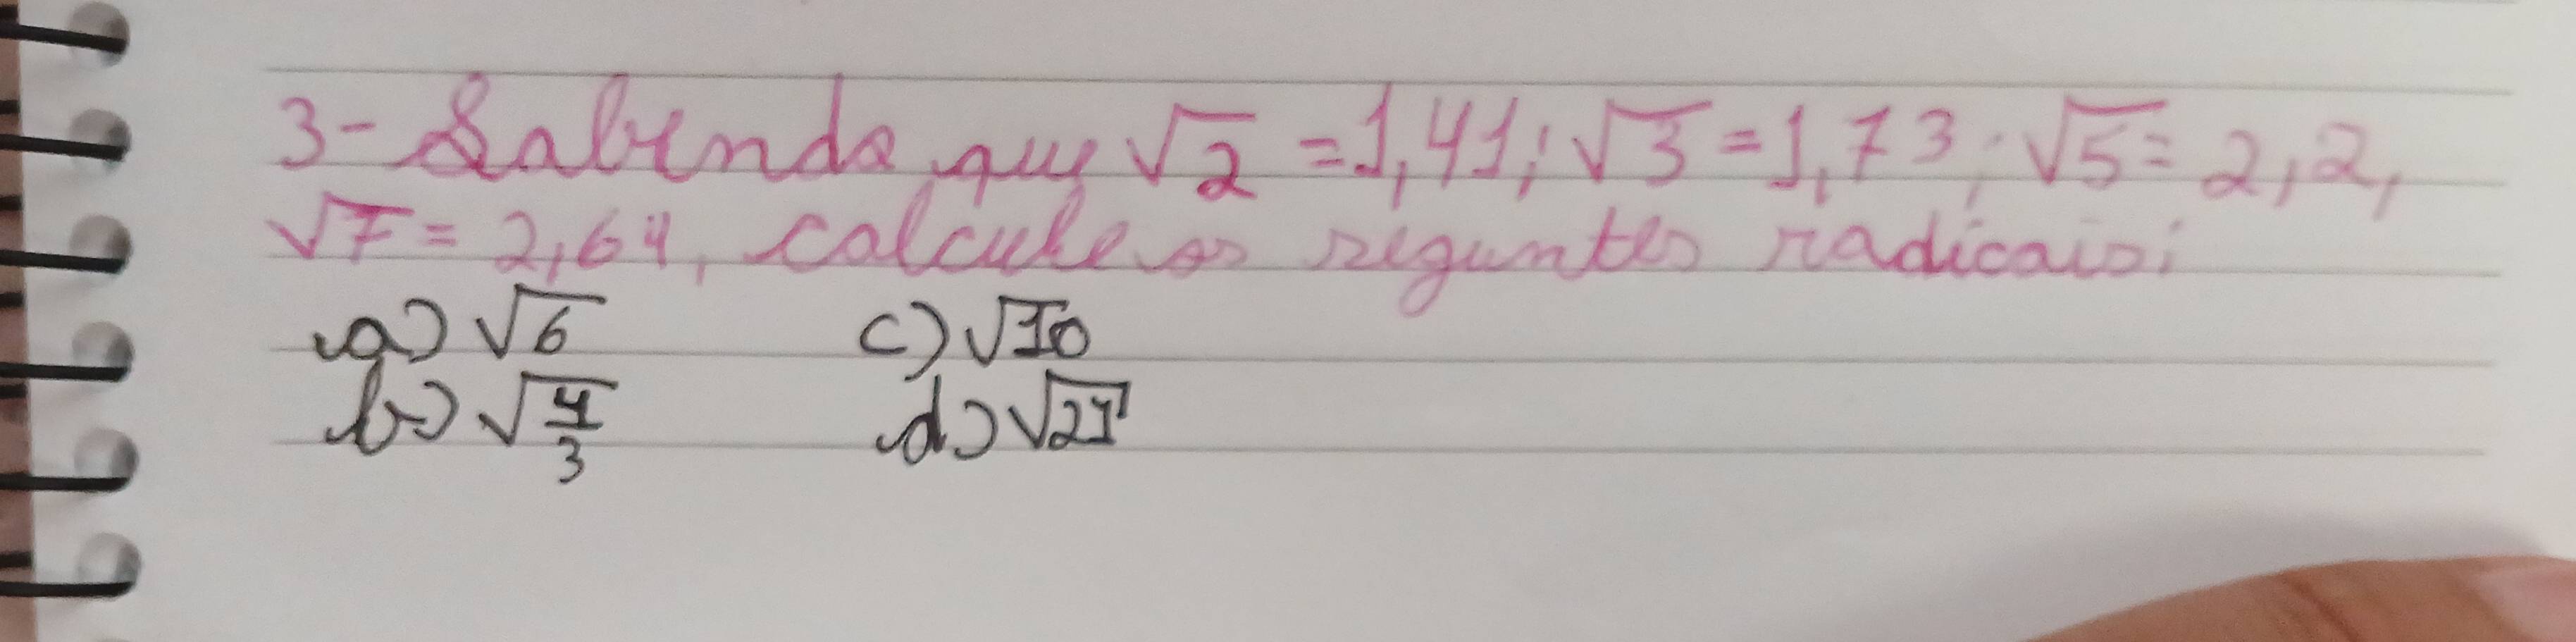 3- Sabendo que √2 = 1,41; √3 = 1,73; √5 = 2,2,
√7 = 2,64, calcule os seguntes radicais:
a) √6 c) √10
b) √4/3 d) √21